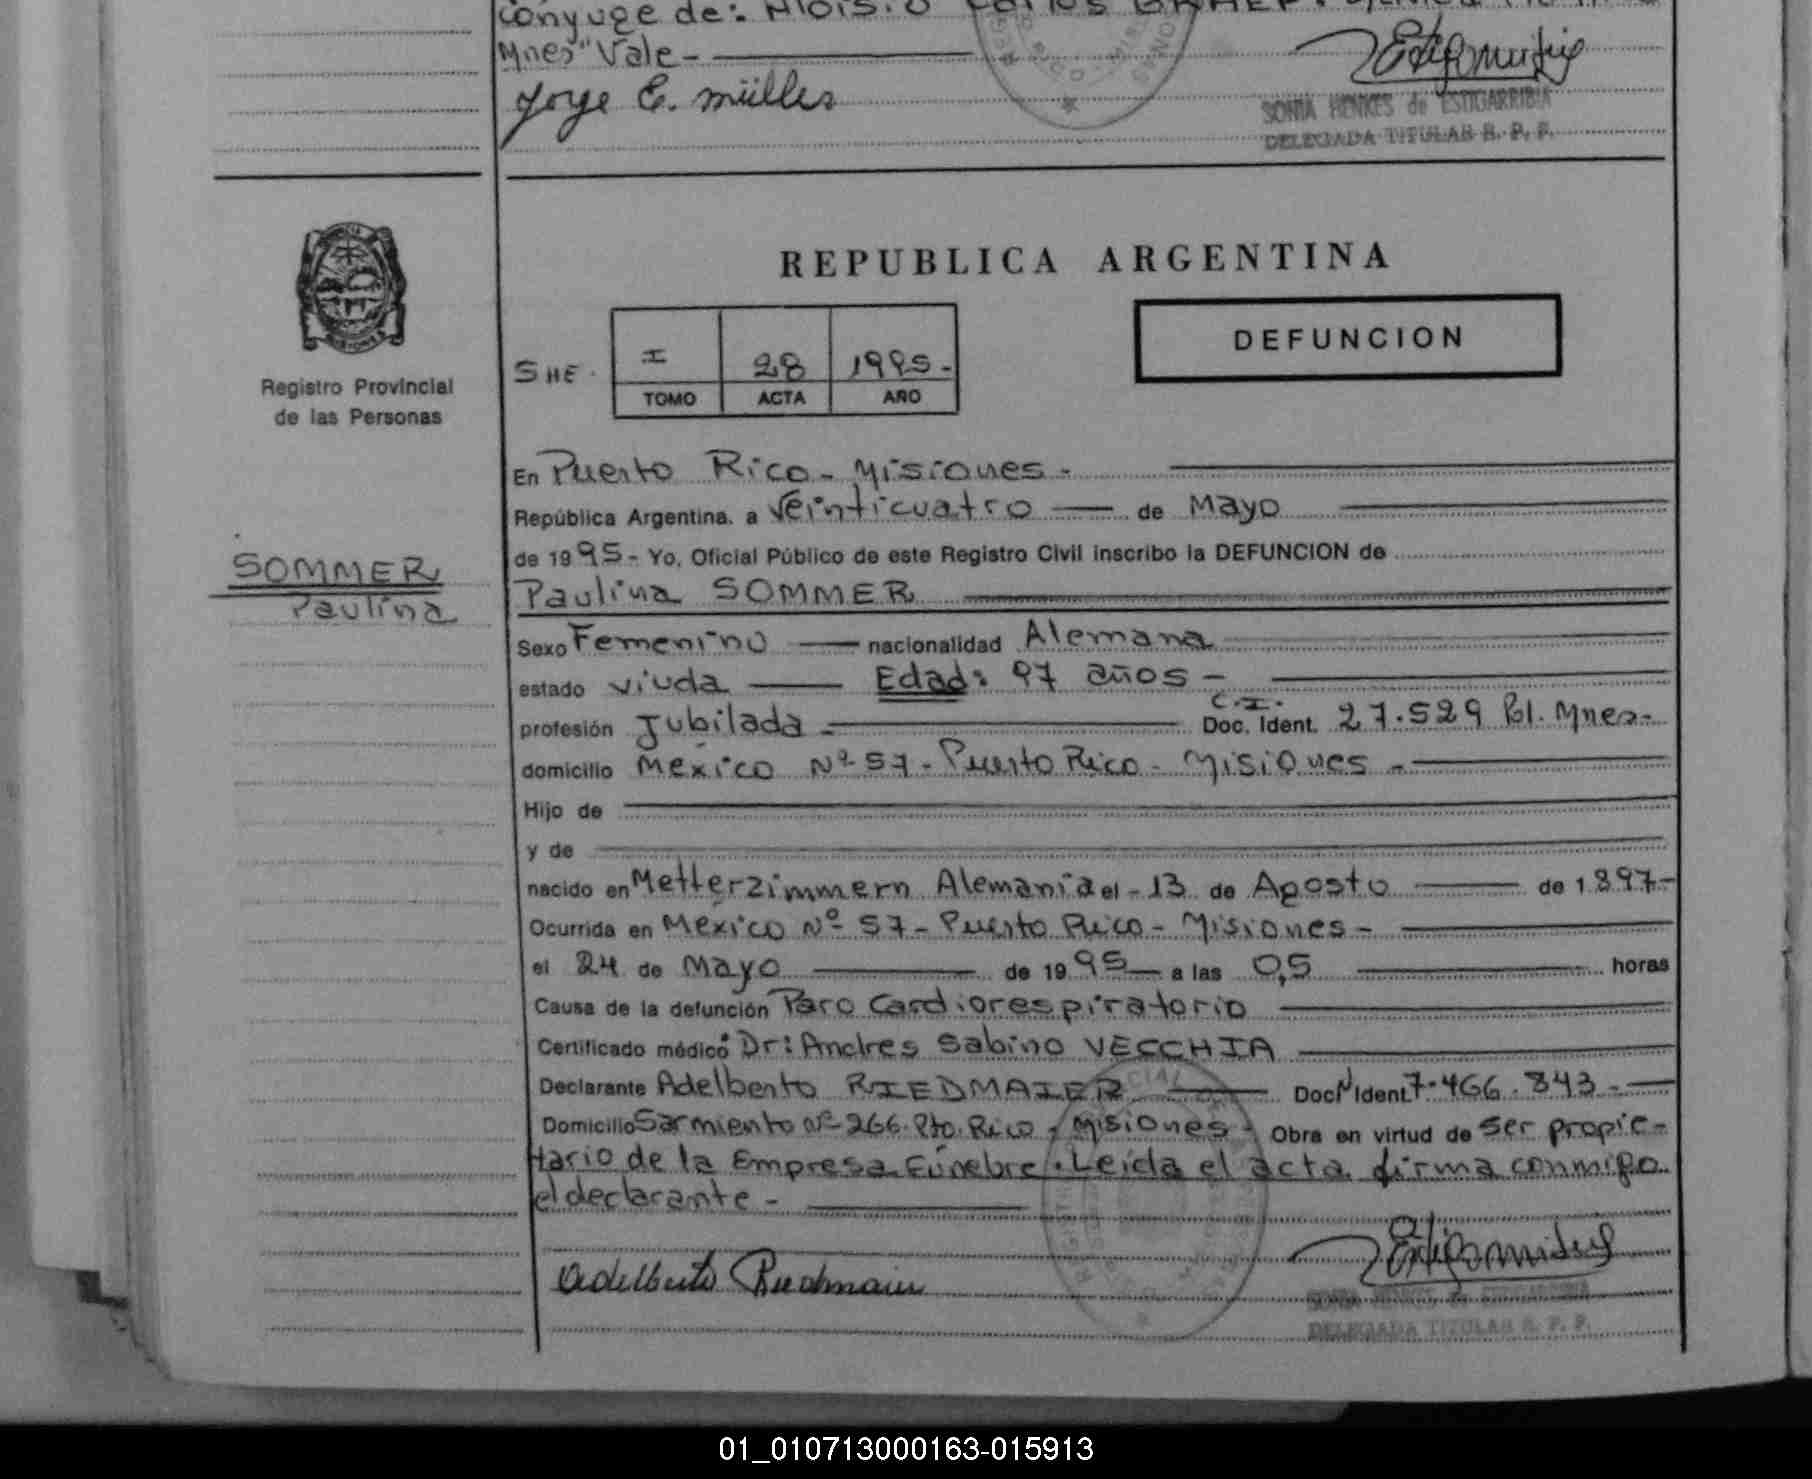 conyuge de: Aloisio Carlos
Mnes" Vale-
Jorge E. Müller
SONIA HENKES de ESTIGARRIBIA
DELEGADA TITULAR R. P. P.
REPUBLICA ARGENTINA
DEFUNCION
SHE.
I 28 1995-
TOMO ACTA AÑO
Registro Provincial
de las Personas
En Puerto Rico - Misiones -
República Argentina, a Veinticuatro — de Mayo
de 1995- Yo, Oficial Público de este Registro Civil inscribo la DEFUNCION de
SOMMER
Paulina
Paulina SOMMER
Sexo Femenino — nacionalidad Alemana
estado viuda — Edad: 97 años -
C.I.
profesión Jubilada - Doc. Ident. 27.529 Pol. Mnes-
domicilio México Nº 57 - Puerto Rico - Misiones -
Hijo de
y de
nacido en Metterzimmern Alemania el - 13 de Agosto — de 1.897-
Ocurrida en México Nº 57 - Puerto Rico - Misiones -
el 24 de Mayo — de 1995 — a las 0,5 — horas
Causa de la defunción Paro Cardiorespiratorio
Certificado médico Dr: Andres Sabino VECCHIA
Declarante Adelberto RIEDMAIER — Doc. N Ident. 7.466.843 -
Domicilio Sarmiento Nº 266. Pto. Rico - Misiones - Obra en virtud de ser propie-
tario de la Empresa Fúnebre. Leida el acta firma conmigo
el declarante -
Adelberto Riedmaier
SONIA HENKES de ESTIGARRIBIA
DELEGADA TITULAR R. P. P.
01_010713000163-015913